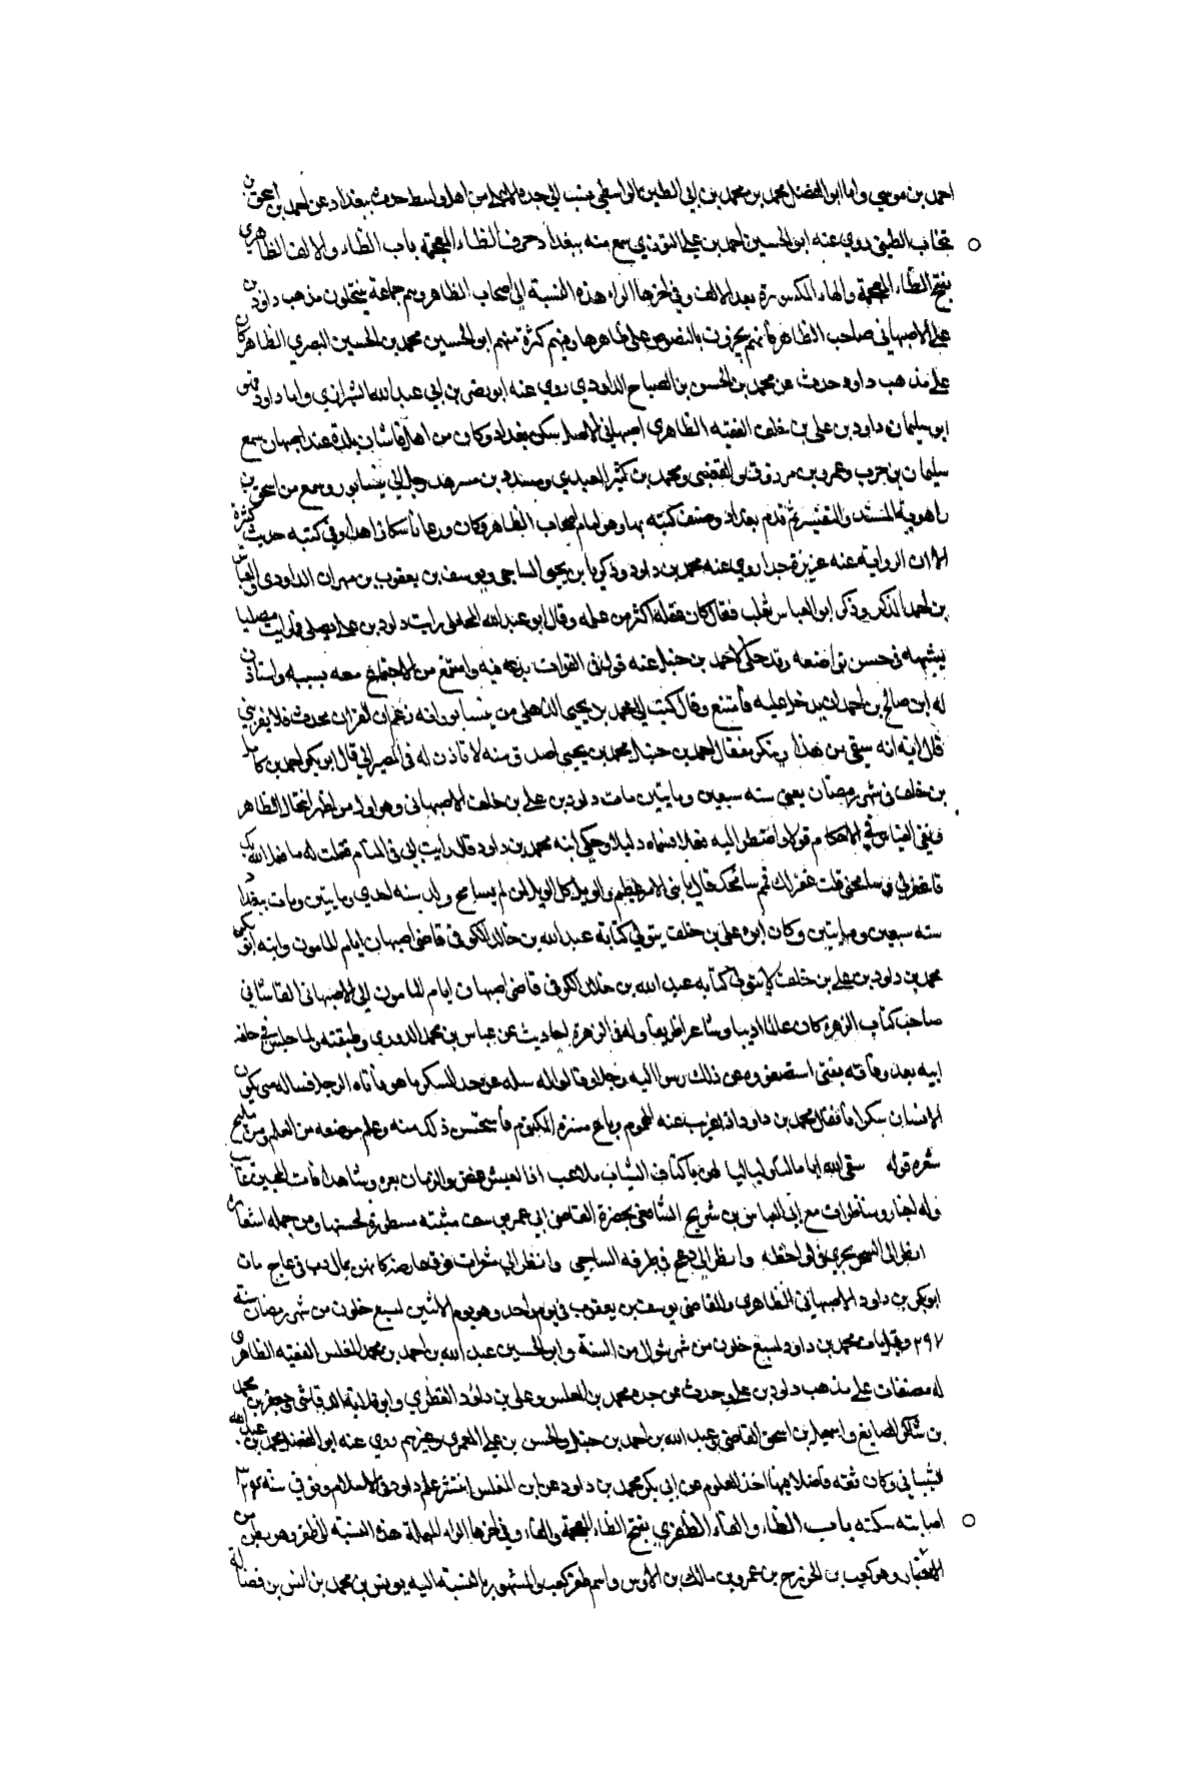 احمد بن موسي واما ابو الفضل محمد بن محمد بن ابي الطين الواسطي ينسب الي جده الاعلي من اهل واسط حدث ببغداد عن احمد بن اسحق بن
الطيني روي عنه ابو الحسين احمد بن علي التوزي سمع منه ببغداد حرف الظاء المعجمة باب الظاء والالف الظاهري
بفتح الظاء المعجمة والهاء المكسورة بعد الالف وفي اخرها الراء هذه النسبة الي اصحاب الظاهر وهم جماعة ينتحلون مذهب داود بن
علي الاصبهاني صاحب الظاهر فانهم يجرون النصوص علي ظاهرها وفيهم كثرة منهم ابو الحسين محمد بن الحسين البصري الظاهري كان
علي مذهب داود حدث عن محمد بن الحسن بن الصباح الداودي روي عنه ابو نصر بن ابي عبد الله الشيرازي واما داود فهو
ابو سليمان داود بن علي بن خلف الفقيه الظاهري اصبهاني الاصل سكن بغداد وكان من اهل قاشان بلدة عند اصبهان سمع
سليمان بن حرب وعمرو بن مرزوق والقعنبي ومحمد بن كثير العبدي ومسدد بن مسرهد ورحل الي نيسابور وسمع من اسحق بن
راهوية المسند والتفسير ثم قدم بغداد وصنف كتبه بها وهو امام اصحاب الظاهر وكان ورعا ناسكا زاهدا وفي كتبه حديث كثيرة
الا ان الرواية عنه عزيزة جدا روي عنه محمد بن داود وزكريا بن يحيي الساجي ويوسف بن يعقوب بن مهران الداودي والعباس
بن احمد المذكر وذكر ابو العباس ثعلب فقال كان عقله اكثر من علمه وقال ابو عبد الله المحاملي رايت داود بن علي يصلي فما رايت مصليا
يشبهه في حسن تواضعه وقد حكي لاحمد بن حنبل عنه قول في القران بدعه فيه وامتنع من الاجتماع معه بسببه واستاذن
له ابن صالح بن احمد ان يدخل عليه فامتنع وقال كتب الي محمد بن يحيي الذهلي من نيسابور انه زعم ان القران محدث فلا يقربني
قال ابه انه ينتفي من هذا وينكره فقال احمد بن حنبل محمد بن يحيي اصدق منه لا تاذن له في المصير الي قال ابو بكر احمد بن كامل
بن خلف في شهر رمضان يعني سنه سبعين ومايتين مات داود بن علي بن خلف الاصبهاني وهو اول من اظهر انتحال الظاهر
ونفي القياس في الاحكام قولا واضطر اليه فعلا فسماه دليلا وحكي ابنه محمد بن داود قال رايت ابي في المنام فقلت له ما فعل الله بك
قال غفر لي وسامحني قلت غفر لك فمم سامحك قال يا بني الامر عظيم والويل كل الويل لمن لم يسامح ولد سنه احدي ومايتين ومات ببغداد
سنه سبعين ومايتين وكان ابوه علي بن خلف يتولي كتابة عبد الله بن خالد الكوفي قاضي اصبهان ايام المامون وابنه ابو بكر
محمد بن داود بن علي بن خلف يتولي كتابه عبد الله بن خالد الكوفي قاضي اصبهان ايام المامون الاصبهاني القاشاني
صاحب كتاب الزهرة كان عالما اديبا وشاعرا ظريفا وله في الزهرة احاديث عن عباس بن محمد الدوري وطبقته ولما جلس في حلقه
ابيه بعد وفاته يفتي استصغروه عن ذلك دسوا اليه رجلا وقالوا له سله عن حد السكر ما هو فاتاه الرجل فساله متي يكون
الانسان سكران فقال محمد بن داود اذا عزبت عنه الهموم وباح بسره المكتوم فاستحسن ذلك منه وعلم موضعه من العلم ومن مليح
شعره قوله سقي الله اياما لنا ولياليا لهن باكناف الشباب ملاعب اذا العيش غض والزمان بعزه وشاهد افات المحبين غائب
وله اخبار ومناظرات مع ابي العباس بن شريح الشافعي بحضرة القاضي ابي عمر بن يوسف مثبته مسطورة لحسنها ومن جمله اشعاره
انظر الي السحر يجري في لواحظه وانظر الي دعج في طرفه الساجي وانظر الي شعرات فوق عارضه كانهن نمال دب في عاج مات
ابو بكر بن داود الاصبهاني الظاهري والقاضي يوسف بن يعقوب في يوم واحد وهو يوم الاثنين لسبع خلون من شهر رمضان سنة
٢٩٧ وقيل مات محمد بن داود لسبع خلون من شهر شوال من السنة وابو الحسين عبد الله بن احمد بن محمد المغلس الفقيه الظاهري
له مصنفات علي مذهب داود بن علي وحدث عن جده محمد بن المغلس وعلي بن داود القنطري وابو قلابة الرقاشي وجعفر بن محمد
بن شاكر الصايغ واسمعيل بن اسحق القاضي وعبد الله بن احمد بن حنبل والحسن بن علي المعمري وغيرهم روي عنه ابو الفضل محمد بن عبد الله
الشيباني وكان ثقه فاضلا فهما اخذ العلوم عن ابي بكر محمد بن داود وعن ابن المغلس انتشر علم داود في الاسلام وتوفي في سنه ٣٢٤
اصابته سكته باب الظاء والفاء الظفري بفتح الظاء المعجمة والفاء وفي اخرها الراء المهملة هذه النسبة الي ظفر وهو بطن من
الانصار وهو كعب بن الخزرج بن عمرو بن مالك بن الاوس واسم ظفر كعب والمشهور بالنسبة اليه يونس بن محمد بن انس بن فضالة